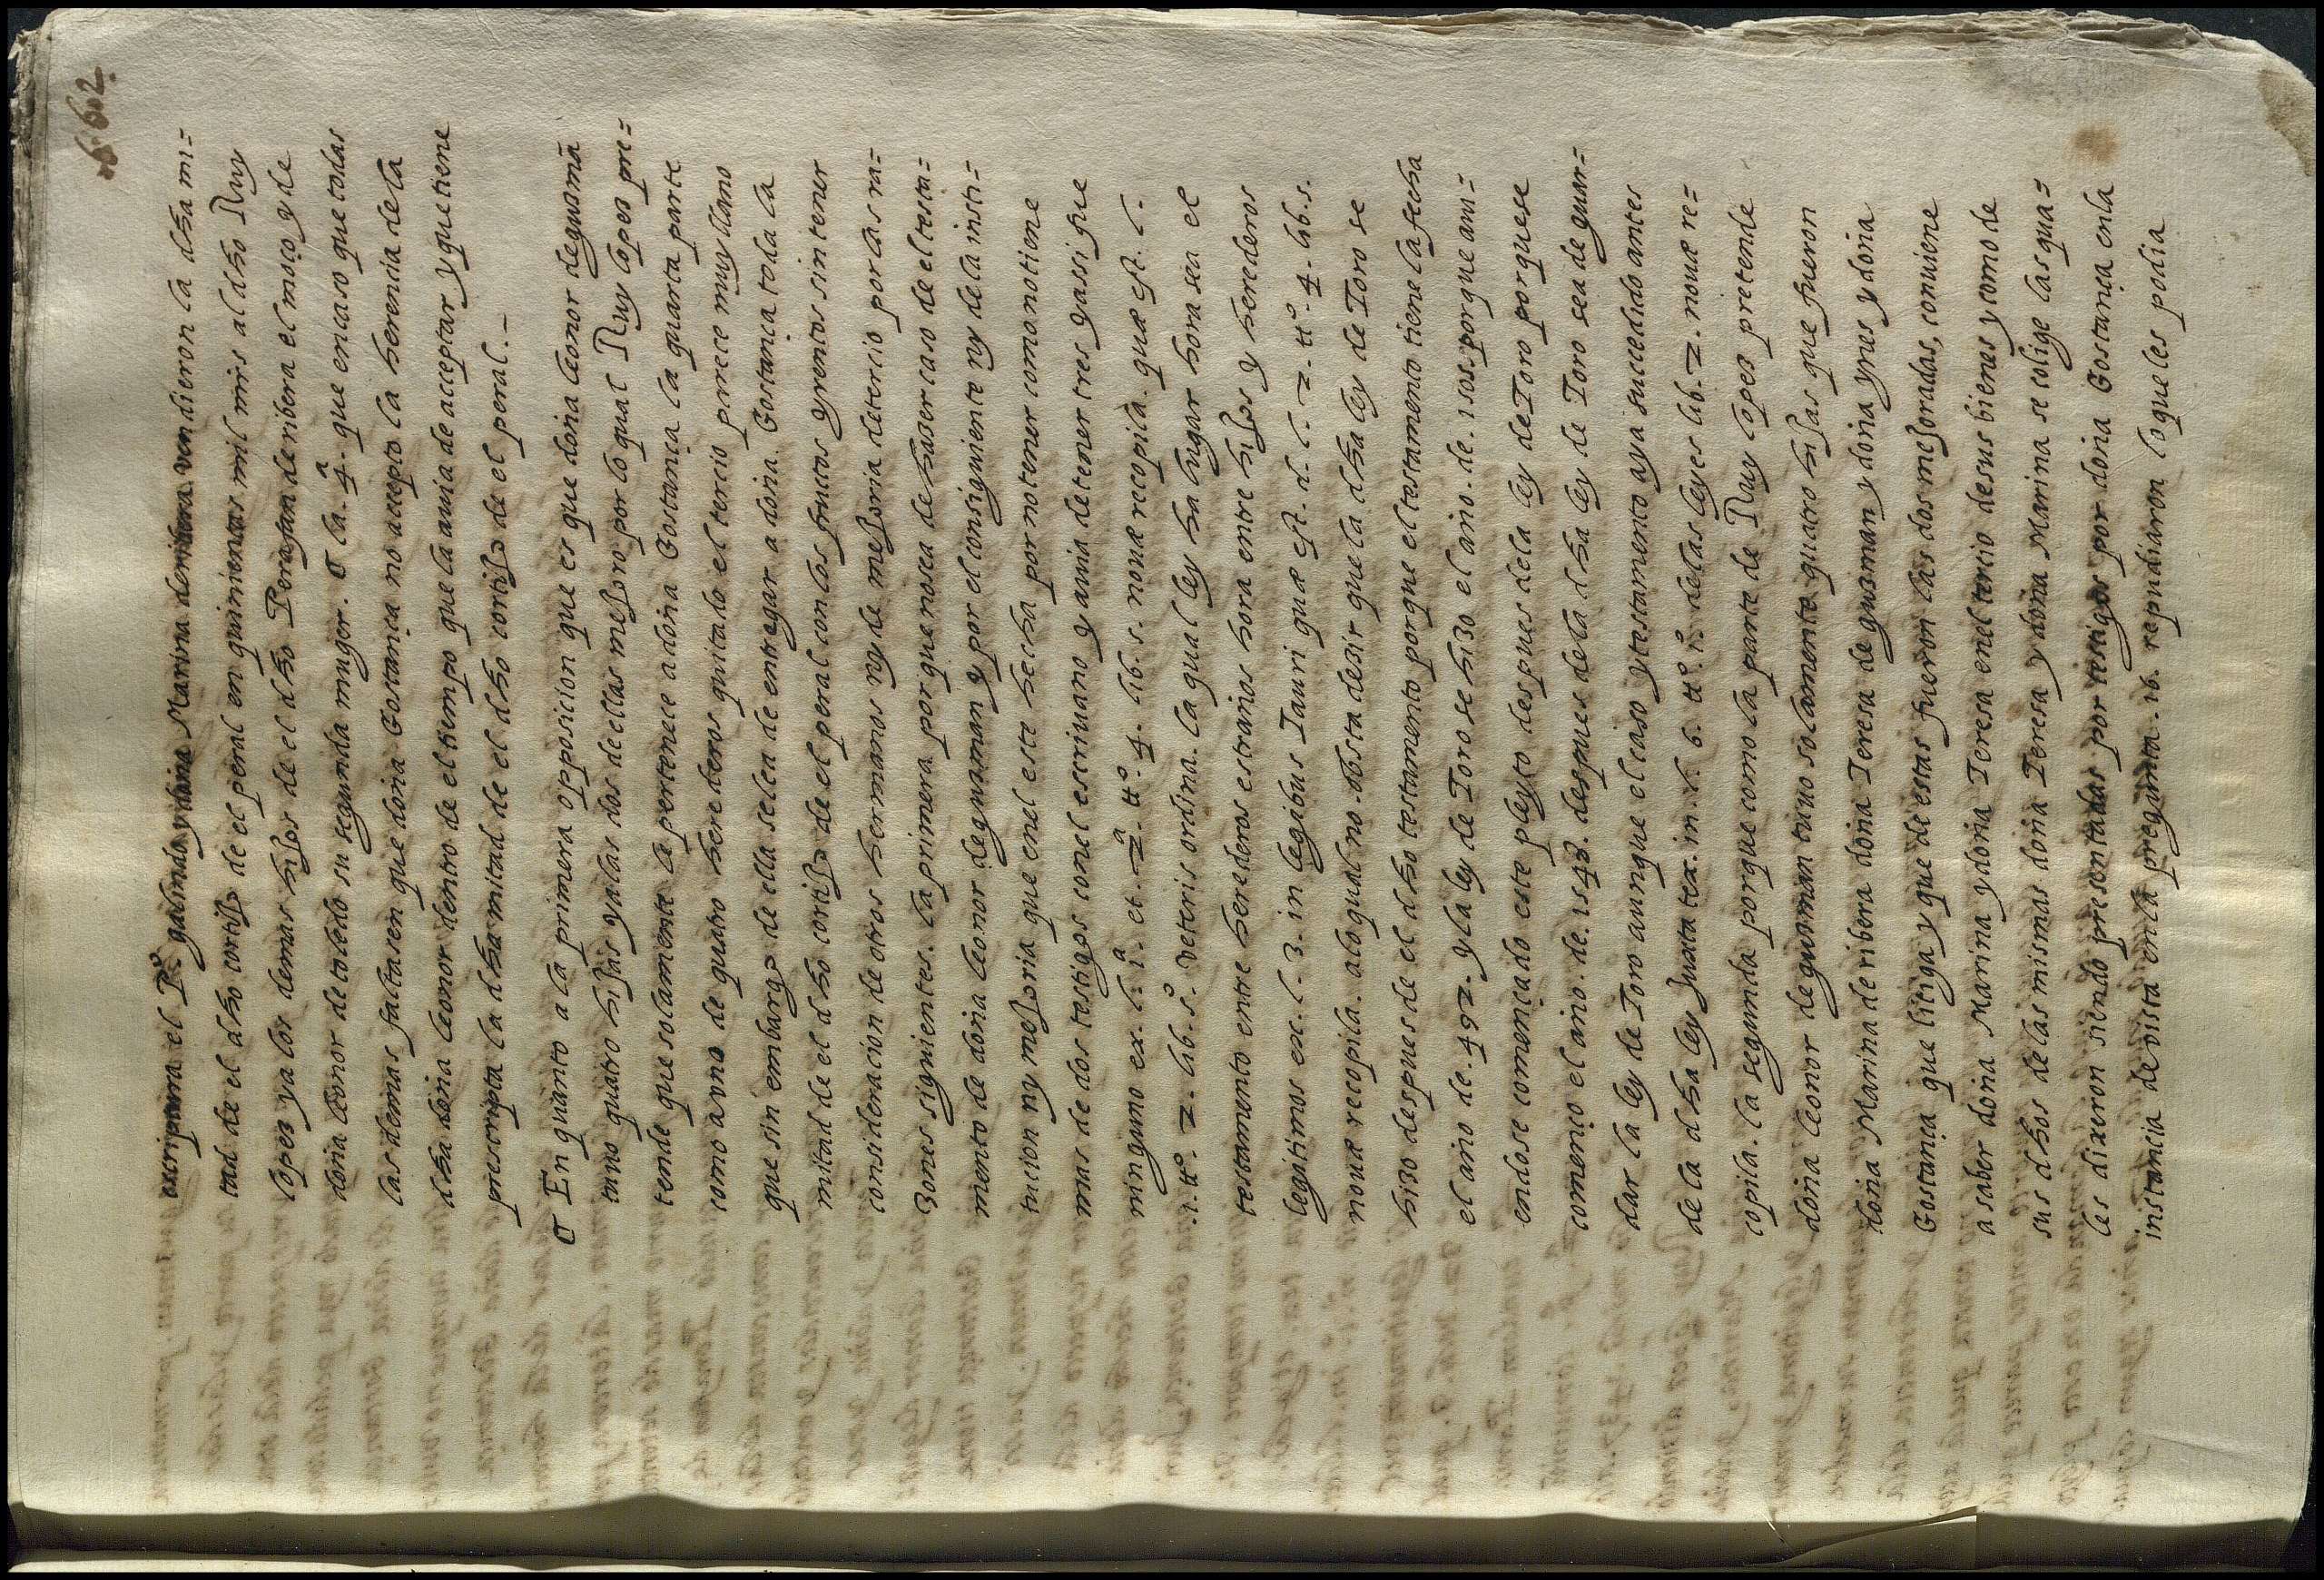 602
escriptura el P.º galindo y doña Marina de ribera vendieron la dha mi=
tad de el dho cortijo de el peral en quinientas mil mrs al dho Ruy
lopez ya los demas hijos de el dho Perafan de ribera el moço y de
doña leonor de toledo su segunda muger. la .4ª. que en caso que todas
las demas faltasen que doña Costança no accepto la herencia de la
dha doña leonor dentro de el tiempo que la auia de acceptar y que tiene
prescripta la dha mitad de el dho cortijo de el peral.-
En quanto a la primera opposicion que es que doña leonor de gusmã
tuuo quatro hijas y a las dos de ellas mejoro por lo qual Ruy lopes pre=
tende que solamente le pertenece a doña Costança la quarta parte
como a vno de quatro herederos quitado el tercio parece muy llano
que sin embargo de ella se le a de entregar a doña. Costança toda la
mitad de el dho cortijo de el peral con los fructos y rentos sin tener
consideracion de otros hermanos ny de mejoria de tercio por las ra=
zones siguientes. la primera porque no sea de haser caso de el testa=
mento de doña leonor de gusman y por el consiguiente ny de la insti=
tucion ny mejoria que en el este hecha por no tener como no tiene
mas de dos testigos con el escriuano y auia de tener tres y assi fue
ninguno ex. l. 1ª. et. 2ª. ttº. 4. lib. 5. nouæ recopila. quæ est. l.
.1. ttº. 2. lib. 5º. veteris ordina. la qual ley ha lugar hora sea el
testamento entre herederos estraños hora entre hijos y herederos
legitimos ex. l. 3. in legibus Tauri quæ est. d. l. 2. ttº. 4. lib. 5.
nouæ recopila. a lo qual no. obsta desir que la dha ley de Toro se
hizo despues de el dho testamento porque el testamento tiene la fecha
el año de. 492. y la ley de Toro se hizo el año. de. 1505. porque aui=
endose començado este pleyto despues de la ley de Toro porque se
començo el año. de. 1548. despues de la dha ley de Toro sea de guar=
dar la ley de Toro aunque el caso y testamento aya succedido antes
de la dha ley Juxta tex. in. l. 6. ttº. 1º. de las leyes lib. 2. nouæ re=
copila. la segunda porque como la parte de Ruy lopes pretende
doña leonor de gusman tuuo solamente quatro hijas que fueron
doña Marina de ribera doña Teresa de gusman y doña ynes y doña
Costança que litiga y que de estas fueron las dos mejoradas, conuiene
a saber doña Marina y doña Teresa en el tercio de sus bienes y como de
sus dhos de las mismas doña Teresa y doña Marina se colige las qua=
les dixeron siendo presentadas por testigos por doña Costança en la
instancia de vista en la pregunta .16. repudiaron lo que les podia